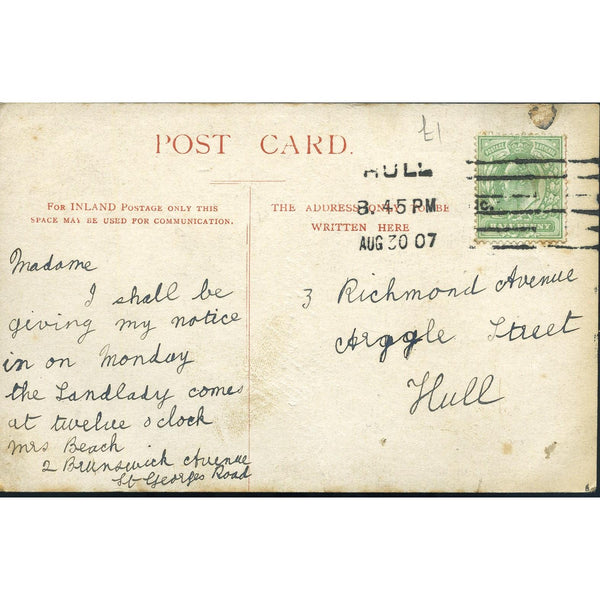 £1
POST CARD.
HULL
8.45 PM
AUG 30 07
FOR INLAND POSTAGE ONLY THIS
SPACE MAY BE USED FOR COMMUNICATION.
THE ADDRESS ONLY TO BE
WRITTEN HERE
Madame
I shall be
giving my notice
in on Monday
the Landlady comes
at twelve o'clock
Mrs Beach
2 Brunswick Avenue
St Georges Road
3 Richmond Avenue
Argyle Street
Hull